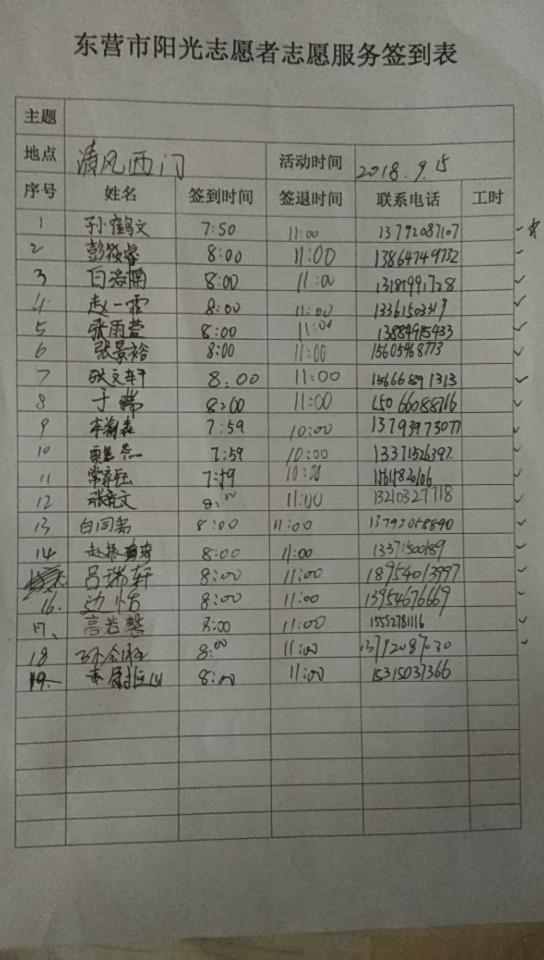 东营市阳光志愿者志愿服务签到表
主题
地点 清风西门 活动时间 2018.9.15
序号 姓名 签到时间 签退时间 联系电话 工时
1 孙鹤文 7:50 11:00 13792087107
2 彭筱睿 8:00 11:00 13864749732
3 8:00 11:00 13181991728
4 赵一霏 8:00 11:00 13361503319
5 张雨萱 8:00 11:00 13884915433
6 张景裕 8:00 11:00 15605468773
7 张文轩 8:00 11:00 15666891313
8 于瑞 8:00 11:00 15066088716
9 7:59 10:00 13793973077
10 7:59 10:00 13371526397
11 7:59 10:00
12 11:00 13210327718
13 8:00 11:00 13792058890
14 8:00 11:00 13371500189
吕瑞轩 8:00 11:00 18954013997
16. 边怡 8:00 11:00 13954676669
17、 高若馨 8:00 11:00 15552781116
18 8:00 11:00
19. 8:00 11:00 15315037366